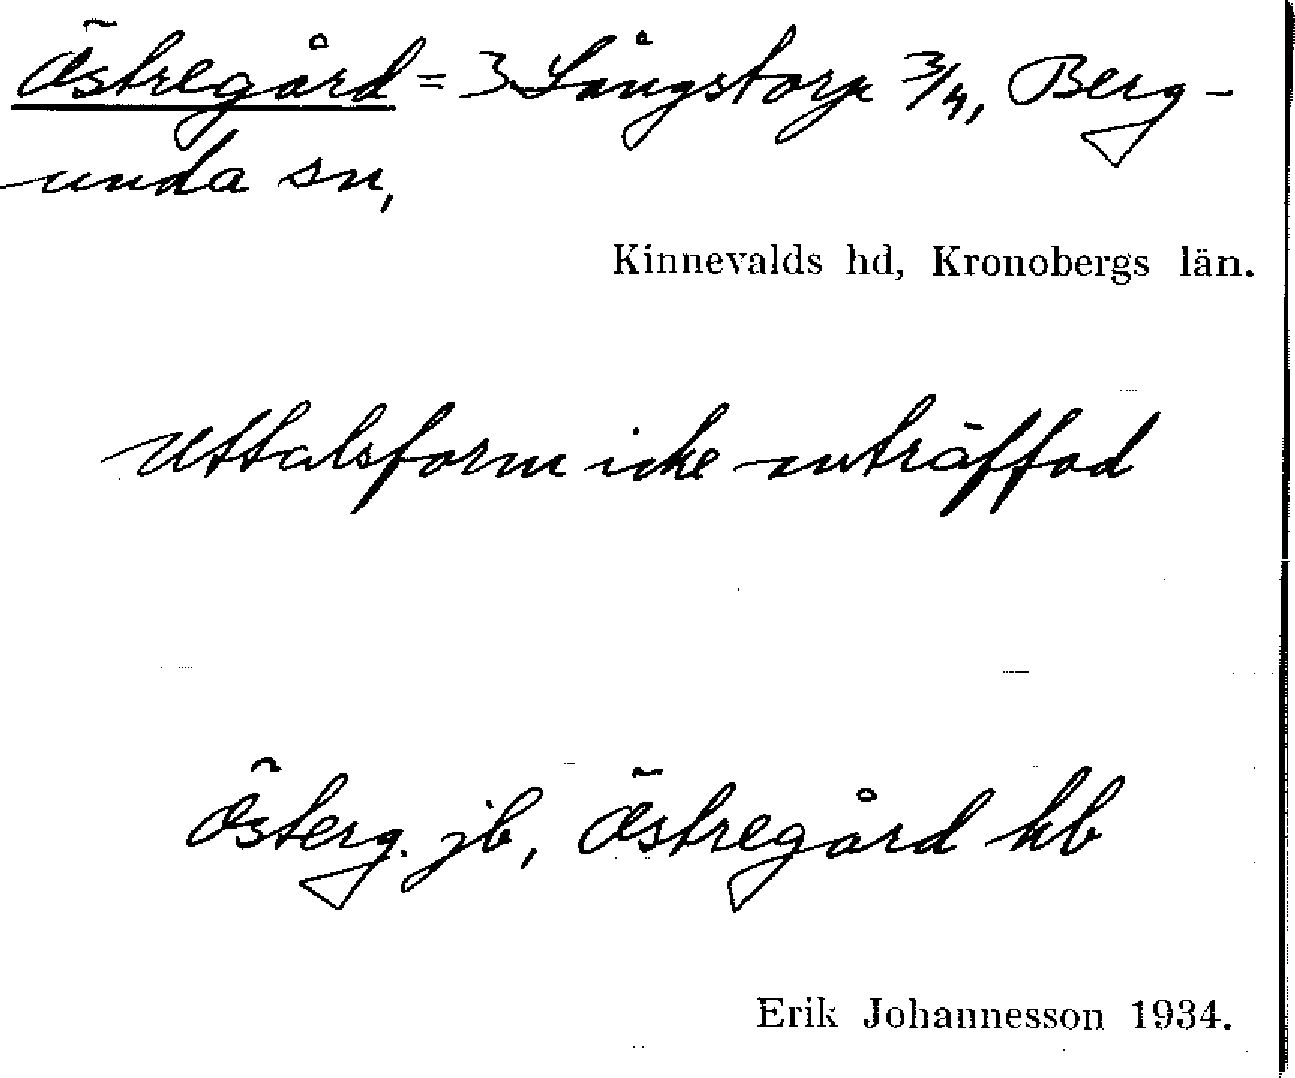 Östregård = 3 Långstorp 3/4, Berg-
unda sn,
Kinnevalds hd, Kronobergs län.
Uttalsform icke anträffad
Österg. jb, Östregård hb
Erik Johannesson 1934.